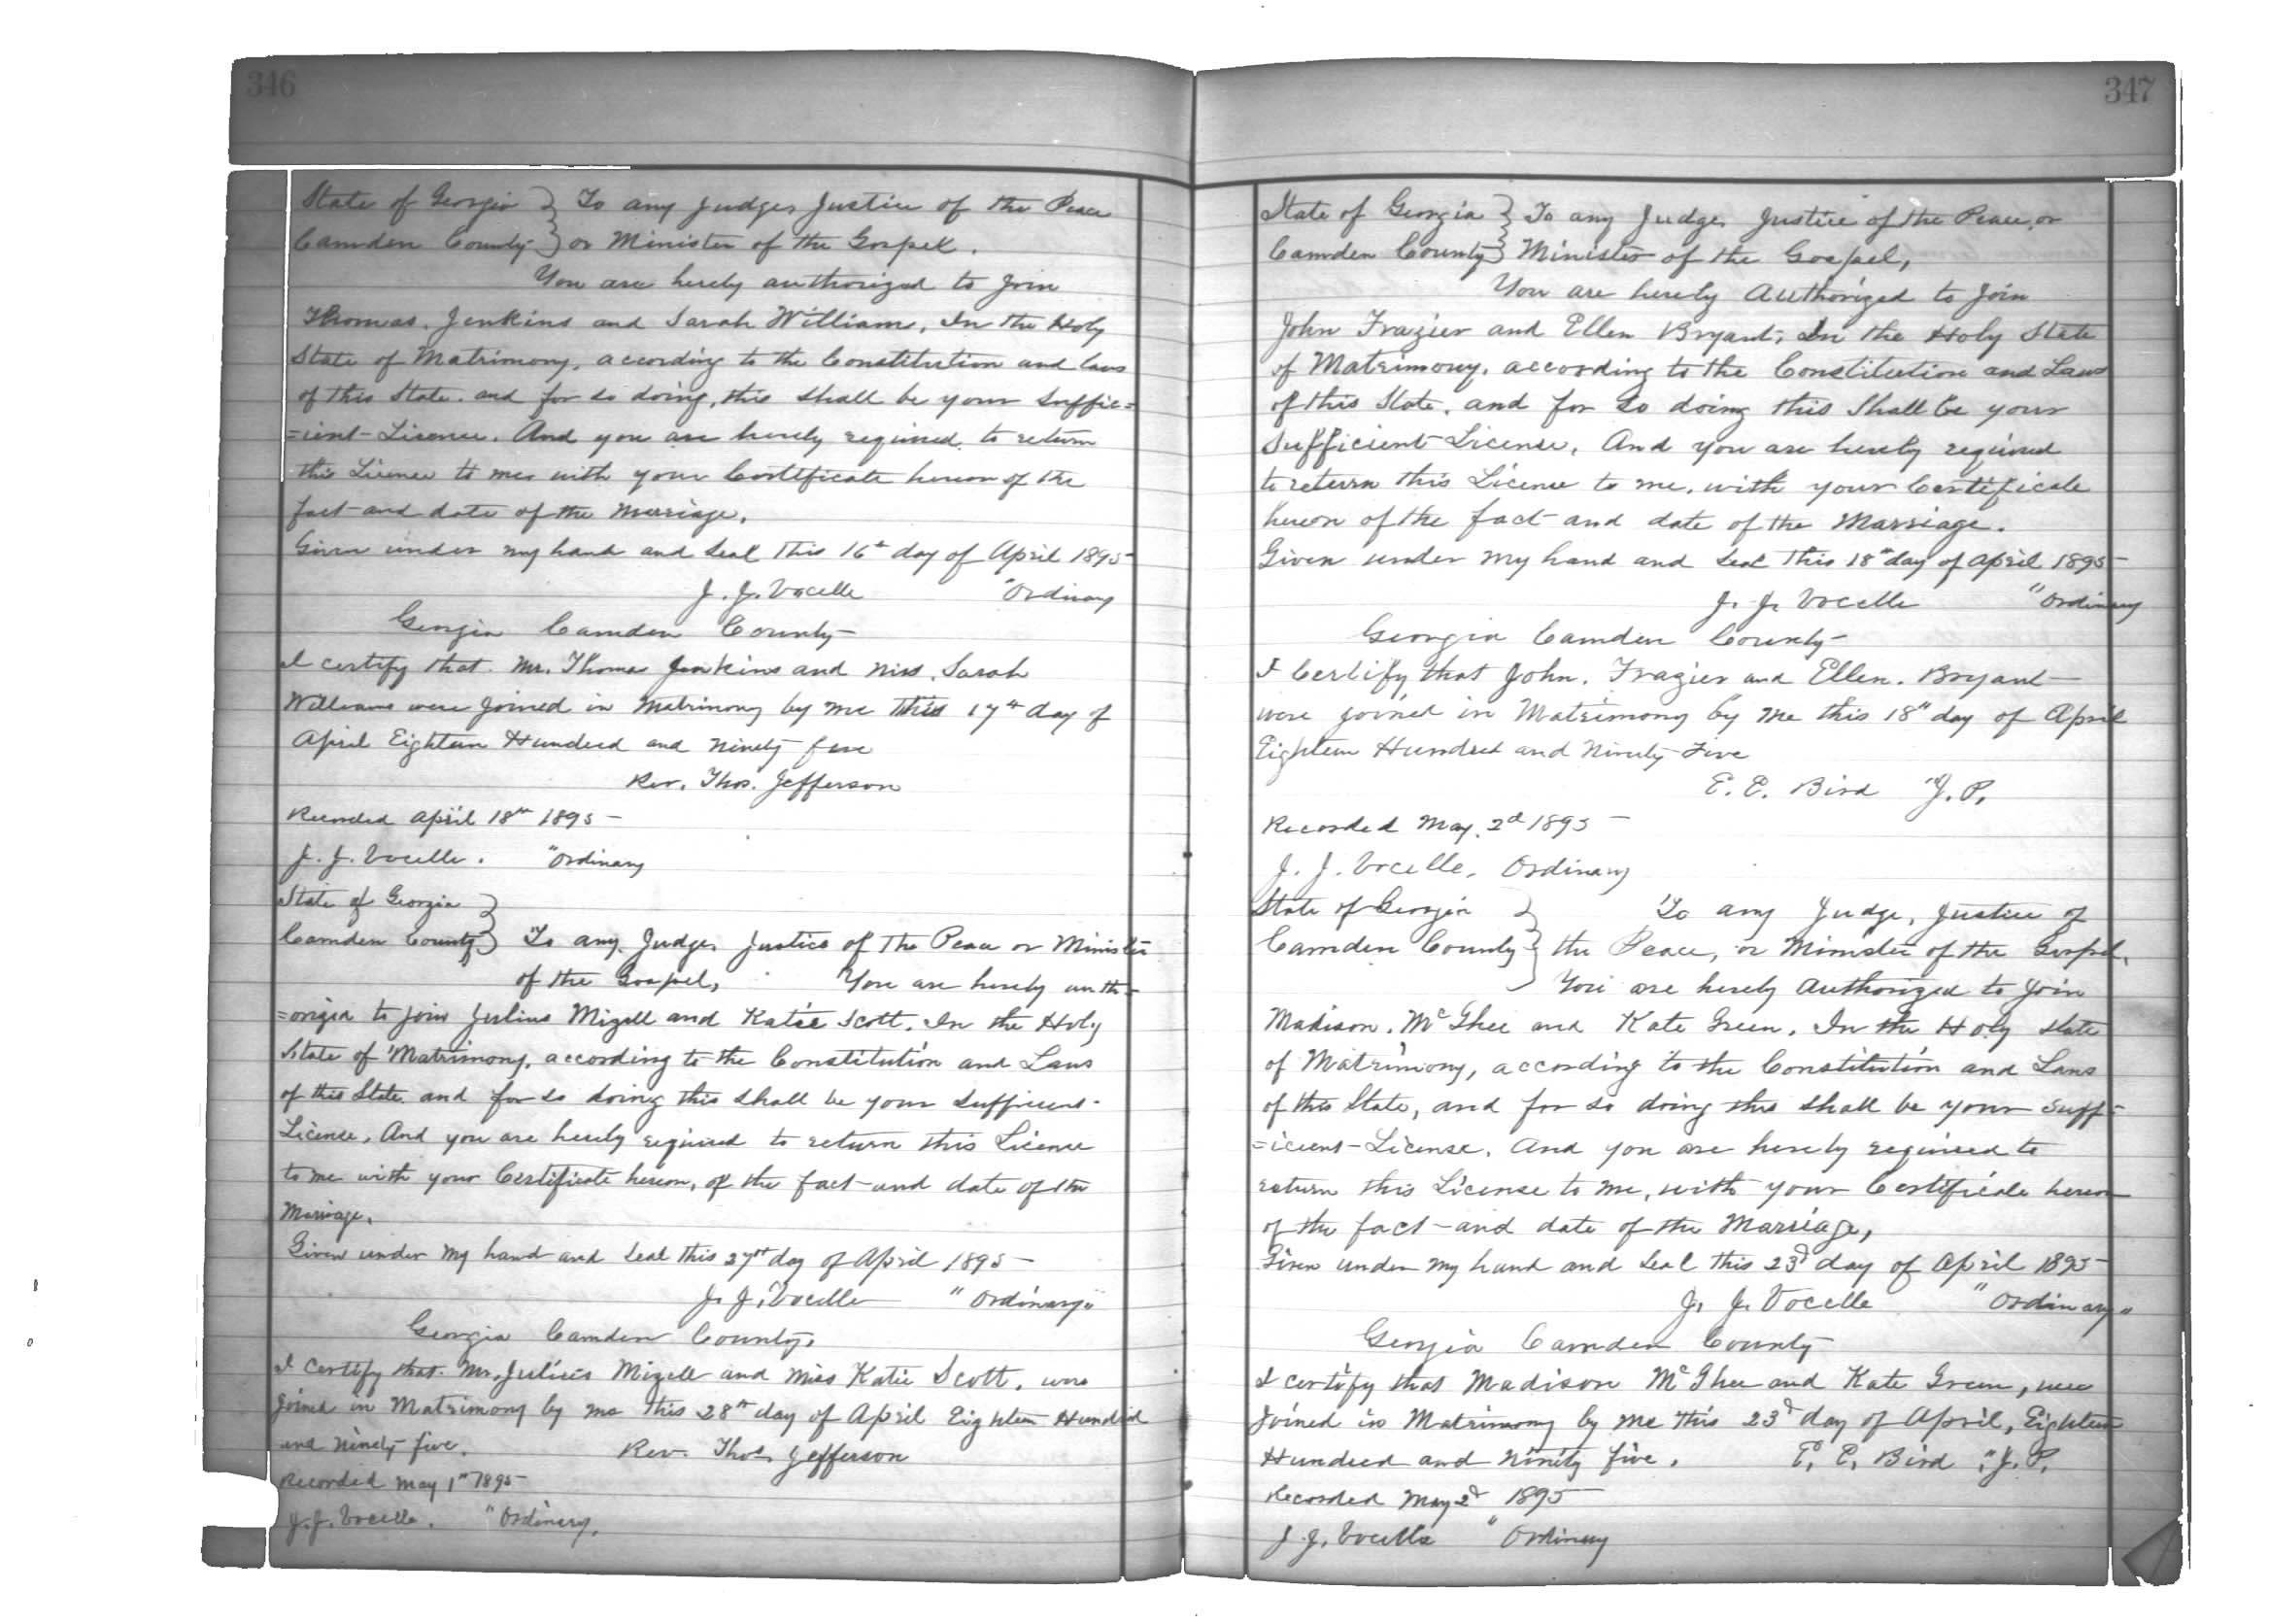 346
State of Georgia } To any Judge, Justice of the Peace
Camden County } or Minister of the Gospel.
You are hereby authorized to join
Thomas. Jenkins and Sarah William, In the Holy
State of Matrimony, according to the Constitution and laws
of this State. and for so doing, this shall be your suffic=
=ient License. And you are hereby required to return
this License to me with your Certificate hereon of the
fact and date of the Marriage.
Given under my hand and seal this 16th day of April 1895
J. J. Vocelle "Ordinary
Georgia Camden County
I certify that Mr. Thomas Jenkins and Miss. Sarah
Williams were joined in Matrimony by me this 17th day of
April Eighteen Hundred and Ninety five
Rev. Thos. Jefferson
Recorded April 18th 1895
J. J. Vocelle. "Ordinary
State of Georgia }
Camden County } To any Judge, Justice of the Peace or Minister
of the Gospel, You are hereby auth=
=orized to join Julius Mizell and Katie Scott. In the Holy
State of Matrimony, according to the Constitution and Laws
of this State. and for so doing this shall be your sufficient
License, And you are hereby required to return this License
to me with your Certificate hereon, of the fact and date of the
Marriage.
Given under my hand and seal this 27th day of April 1895
J. J. Vocelle "Ordinary"
Georgia Camden County,
I certify that Mr. Julius Mizell and Miss Katie Scott. were
joined in Matrimony by me this 28th day of April Eighteen Hundred
and Ninety five. Rev. Thos. Jefferson
Recorded May 1st 1895
J. J. Vocelle. "Ordinary,
347
State of Georgia } To any Judge, Justice of the Peace, or
Camden County } Minister of the Gospel,
You are hereby Authorized to join
John Frazier and Ellen Bryant, In the Holy State
of Matrimony, according to the Constitution and Laws
of this State, and for so doing this shall be your
Sufficient License, And you are hereby required
to return this License to me, with your Certificate
hereon of the fact and date of the Marriage.
Given under my hand and seal this 18th day of April 1895
J. J. Vocelle "Ordinary
Georgia Camden County
I Certify that John. Frazier and Ellen. Bryant
were joined in Matrimony by me this 18th day of April
Eighteen Hundred and Ninety Five
E. E. Bird "J. P.
Recorded May, 2d 1895
J. J. Vocelle, Ordinary
State of Georgia } To any Judge, Justice of
Camden County } the Peace, or Minister of the Gospel,
You are hereby Authorized to join
Madison. McGhee and Kate Green, In the Holy State
of Matrimony, according to the Constitution and Laws
of this State, and for so doing this shall be your suff=
=icient License. And you are hereby required to
return this License to me, with your Certificate hereon
of the fact and date of the Marriage,
Given under my hand and seal this 23d day of April 1895
J. J. Vocelle "Ordinary"
Georgia Camden County
I certify that Madison McGhee and Kate Green, were
joined in Matrimony by me this 23d day of April, Eighteen
Hundred and Ninety five. E. E. Bird "J. P.
Recorded May 2d 1895
J. J. Vocelle "Ordinary